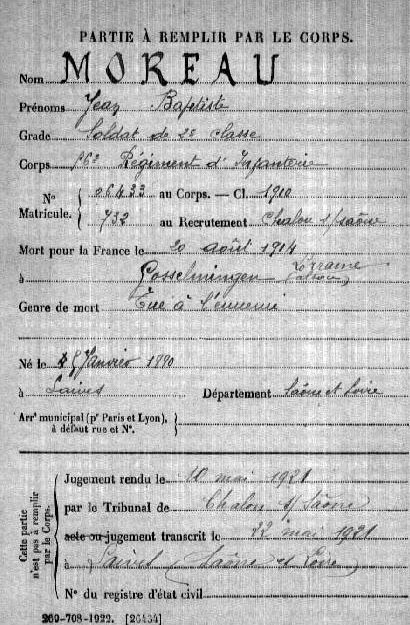 PARTIE À REMPLIR PAR LE CORPS.
Nom MOREAU
Prénoms Jean Baptiste
Grade Soldat de 2e classe
Corps 56e Régiment d'Infanterie
N° 06433 au Corps. — Cl. 1910
Matricule. 732 au Recrutement Chalon s/saône
Mort pour la France le 20 août 1914
à Gosselmingen (Lorraine
Genre de mort Tué à l'ennemi
Né le 5 Janvier 1890
à Laives Département Saône et Loire
Arrt municipal (pr Paris et Lyon),
à défaut rue et N°.
Cette partie
n'est pas à remplir
par le Corps.
Jugement rendu le 10 mai 1921
par le Tribunal de Chalon s/ Saône
acte ou jugement transcrit le 22 mai 1921
à Laives Saône et Loire
N° du registre d'état civil
269-708-1922. [26434]